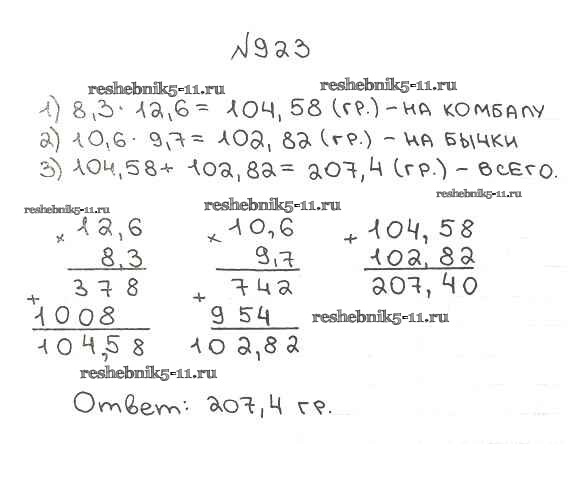 №923
reshebnik5-11.ru reshebnik5-11.ru
1) 8,3 · 12,6 = 104,58 (гр.) – НА КОМБАЛУ
2) 10,6 · 9,7 = 102,82 (гр.) – НА БЫЧКИ
3) 104,58 + 102,82 = 207,4 (гр.) – ВСЕГО.
reshebnik5-11.ru
reshebnik5-11.ru reshebnik5-11.ru
× 12,6 × 10,6 + 104,58
8,3 9,7 102,82
378 742 207,40
+ +
1008 954 reshebnik5-11.ru
104,58 102,82
reshebnik5-11.ru
Ответ: 207,4 гр.